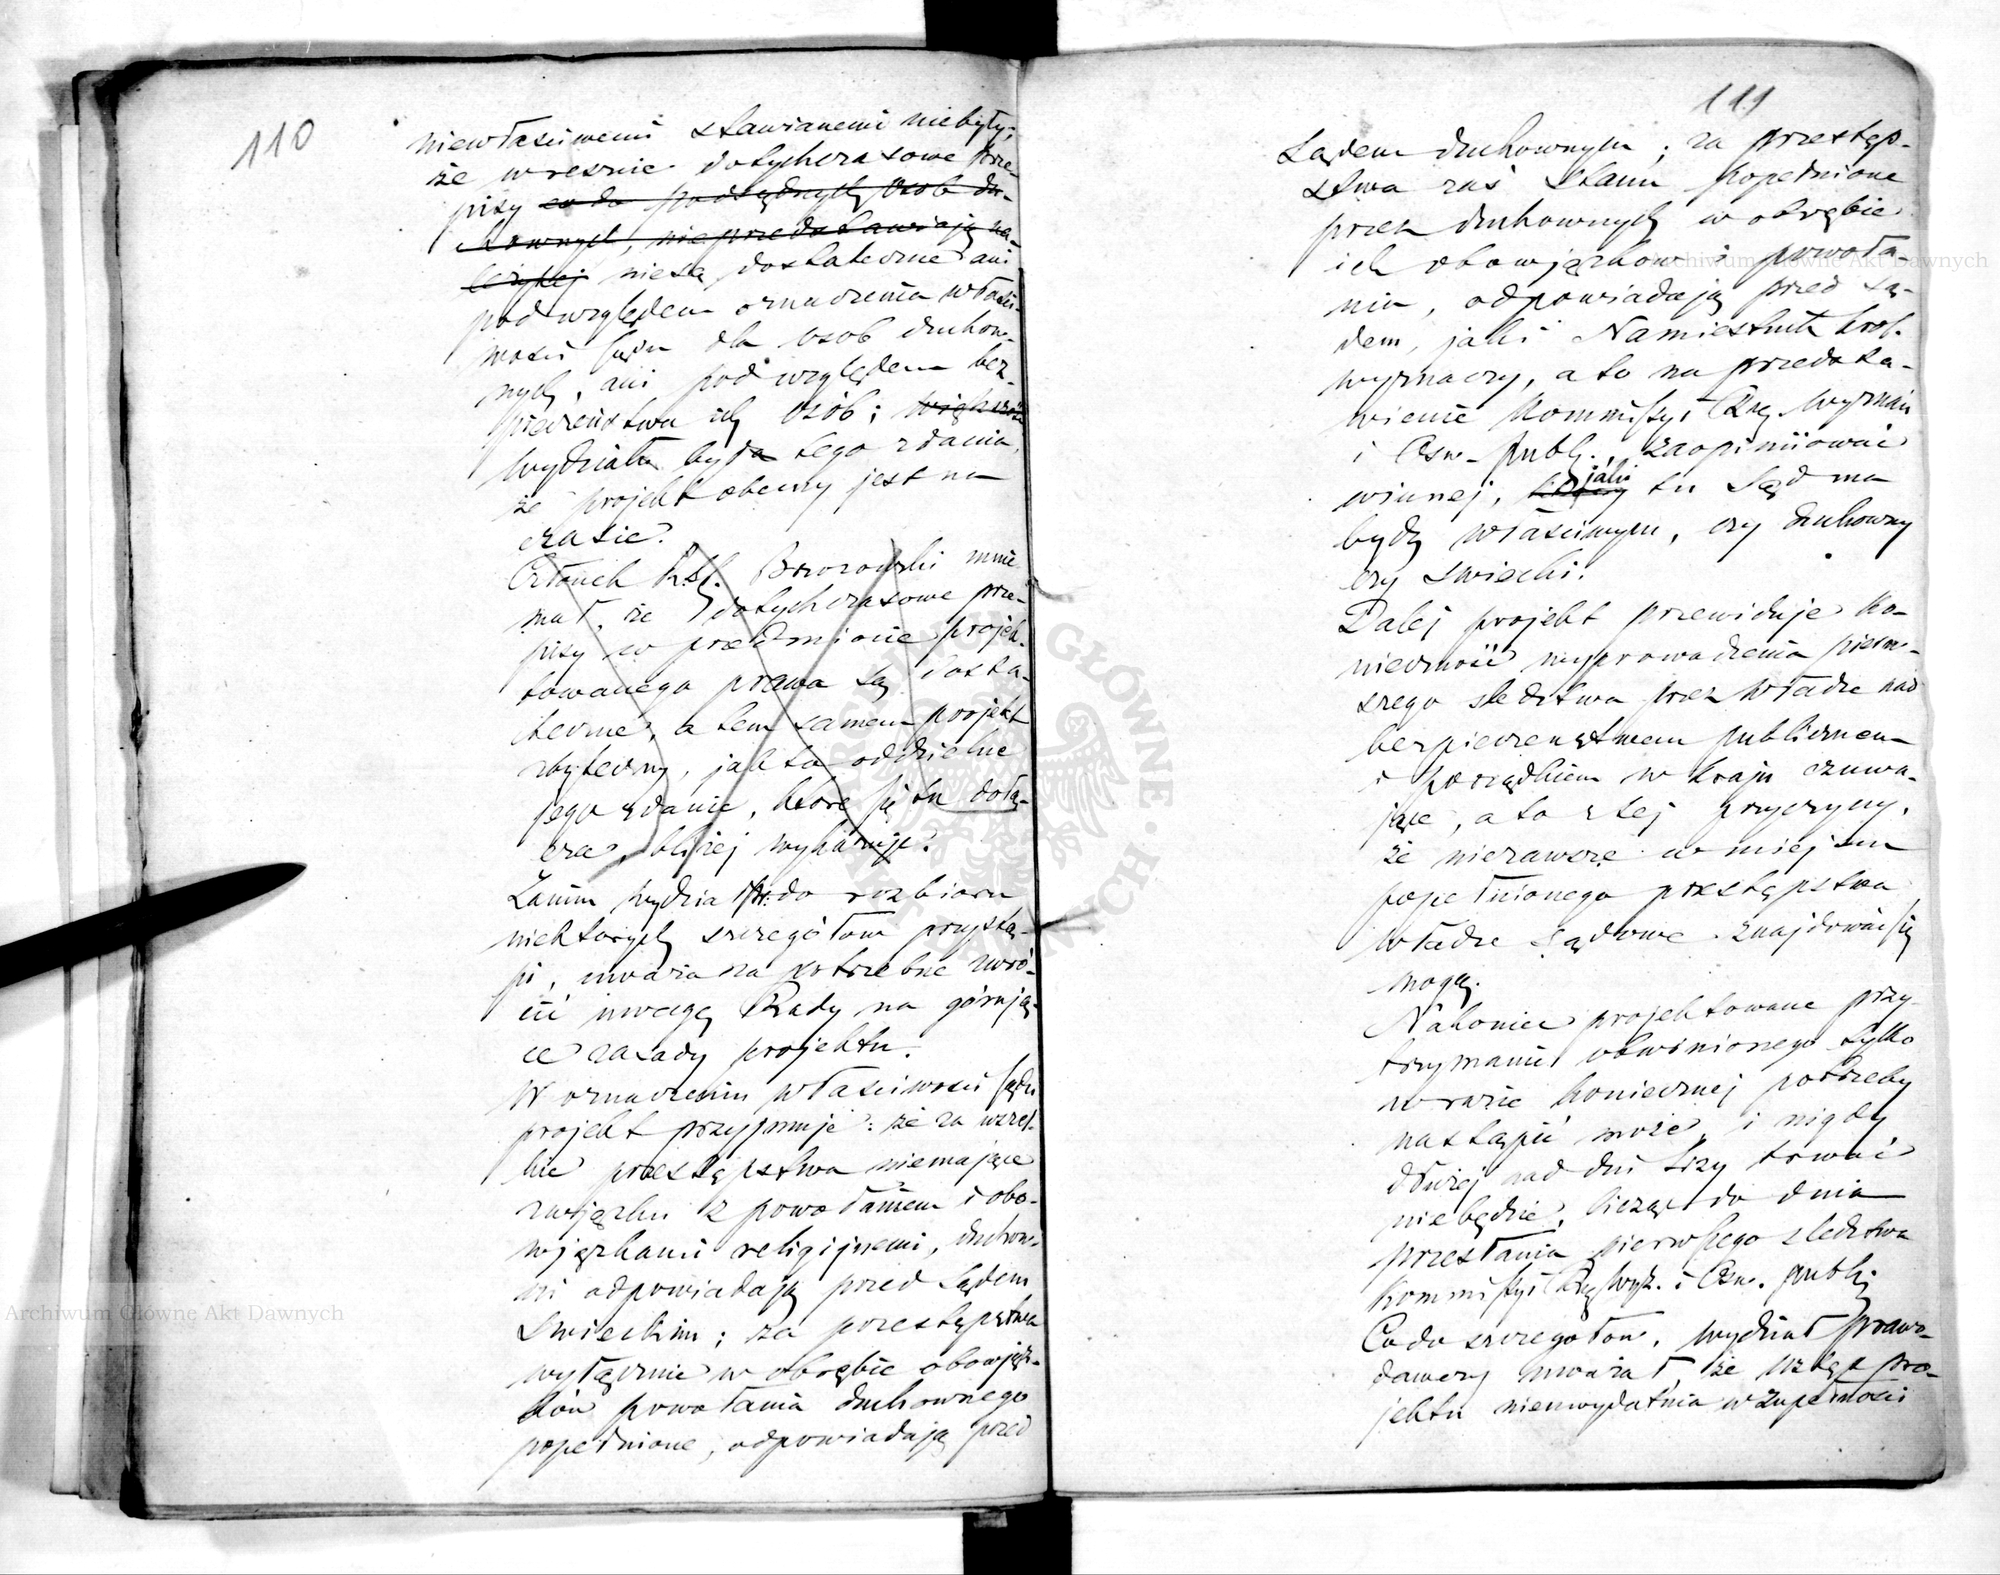 110
niewłaściwemi stawianemi niebyły;
że wreszcie dotychczasowe prze-
pisy co do podsędnych osob du-
chownych, nieprzedstawiają na-
leżytej niesą dostateczne ani
pod względem oznaczenia właści-
wości sądu dla osob duchow-
nych, ani pod względem bez-
pieczeństwa tych osób; większość
wydziału była tego zdania,
że projekt obecny jest na
czasie.
Członek R. St. Brzozowski mnie-
mał, że dotychczasowe prze-
pisy w przedmiocie projek-
towanego prawa są dosta-
teczne, a tem samem projekt
zbyteczny, jak to oddzielne
jego zdanie, które się tu dołą-
cza, bliżej wykazuje.
Zanim wydział do rozbioru
niektorych szczegółow przystą-
pi, uważa za potrzebne zwró-
cić uwagę Rady na górują-
ce zasady projektu.
W oznaczeniu właściwości sądu
projekt przyjmuje: że za wszel-
kie przestępstwa niemające
związku z powołaniem i obo-
wjązkami religijnemi, duchow-
ni odpowiadają przed Sądem
Swieckim; za przestępstwa
wyłącznie w obrębie obowjąz-
ków powołania duchownego
popełnione, odpowiadają przed
111
Sądem duchownym; za przestęp-
stwa zaś Stanu popełnione
przez duchownych w obrębie
ich obowjązkow i powoła-
nia, odpowiadają przed Są-
dem, jaki Namiestnik Król.
wyznaczy, a to na przedsta-
wienie Kommissyi Rzą. Wyznań
i Ośw. publ., zaopiniiować
winnej, jaki tu Sąd ma
bydź właściwym, czy duchowny
czy Swiecki.
Dalej projekt przewiduje Ko-
nieczność wyprowadzenia pierw-
szego sledztwa przez władze nad
bezpieczeństwem publicznem
i porządkiem w kraju czuwa-
jące, a to z tej przyczyny,
że niezawsze w miejscu
popełnionego przestępstwa
władze Sądowe znajdować się
mogą.
Nakoniec projektowane przy-
trzymanie obwinionego tylko
w razie koniecznej potrzeby
nastąpić może, i nigdy
dłużej nad dni trzy trwać
niebędzie, licząc do dnia
przesłania pierwszego sledztwa
Kommissyi Rzą. Wyz. i Ośw. publ.
Co do szczegołow, wydział prawo-
dawczy uważał, że wstęp pro-
jektu nieuwydatnia w zupełności
Archiwum Główne Akt Dawnych
Archiwum Główne Akt Dawnych